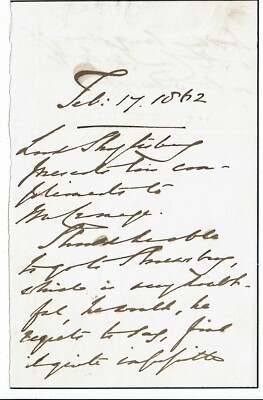 Feb: 17. 1862
Lord Shaftesbury
presents his com-
pliments to
Mr
Should he be able
to go to Shrewsbury,
which is very doubt-
ful, he would, he
regrets to say, find
it quite impossible